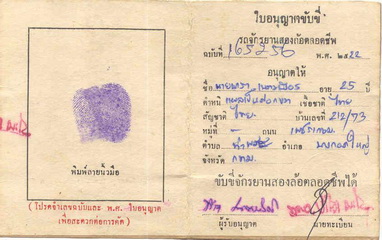 ใบอนุญาตขับขี่
รถจักรยานสองล้อตลอดชีพ
ฉบับที่ 165256 พ.ศ. ๒๕22
อนุญาตให้
ชื่อ อายุ 25 ปี
ตำหนิ เชื้อชาติ ไทย
สัญชาติ ไทย บ้านเลขที่ 212/73
หมู่ที่ - ถนน เพชรเกษม
ตำบล อำเภอ บางกอกใหญ่
จังหวัด กทม.
ขับขี่จักรยานสองล้อตลอดชีพได้
ผู้รับอนุญาต นายทะเบียน
พิมพ์ลายนิ้วมือ
(โปรดจำเลขฉบับและ พ.ศ. ใบอนุญาต
เพื่อสะดวกต่อการคัด)